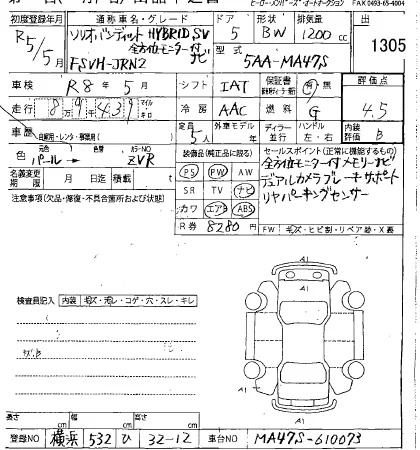 FAX 0493-65-4004
初度登録年月 通称車名・グレード ドア 形状 排気量 出
R5/5月 ソリオバンディット HYBRID SV 5 BW 1200cc 1305
全方位モニター付ナビ 型式
FSVH-JRN2 5AA-MA47S
車検 R8年5月 シフト IAT 保証書 有・無 評価点
走行 8万9千439 マイル キロ 冷房 AAC 燃料 G 4.5
車歴 自家用・レンタ・事業用( ) 定員 5人 外車モデル 年 ディーラー 並行 ハンドル 左・右 内装評価 B
色 元色 パール→ 色替 カラーNO ZVR 装備品(純正品に限る) セールスポイント(正常に機能するもの)
名義変更期限 月 日迄 積載 t PS PW AW 全方位モニター付メモリーナビ
SR TV ナビ デュアルカメラブレーキサポート
注意事項(欠品・修復・不具合箇所および状態) カワ エアB ABS リヤパーキングセンサー
R券 8280円 FW キズ・ヒビ割・リペア跡・X裏
検査員記入 内装 キズ・汚レ・コゲ・穴・スレ・キレ
A1
A1
A1
A1
長さ cm 幅 cm 高さ cm
登録NO 横浜 532 ひ 32-12 車台NO MA47S-610073